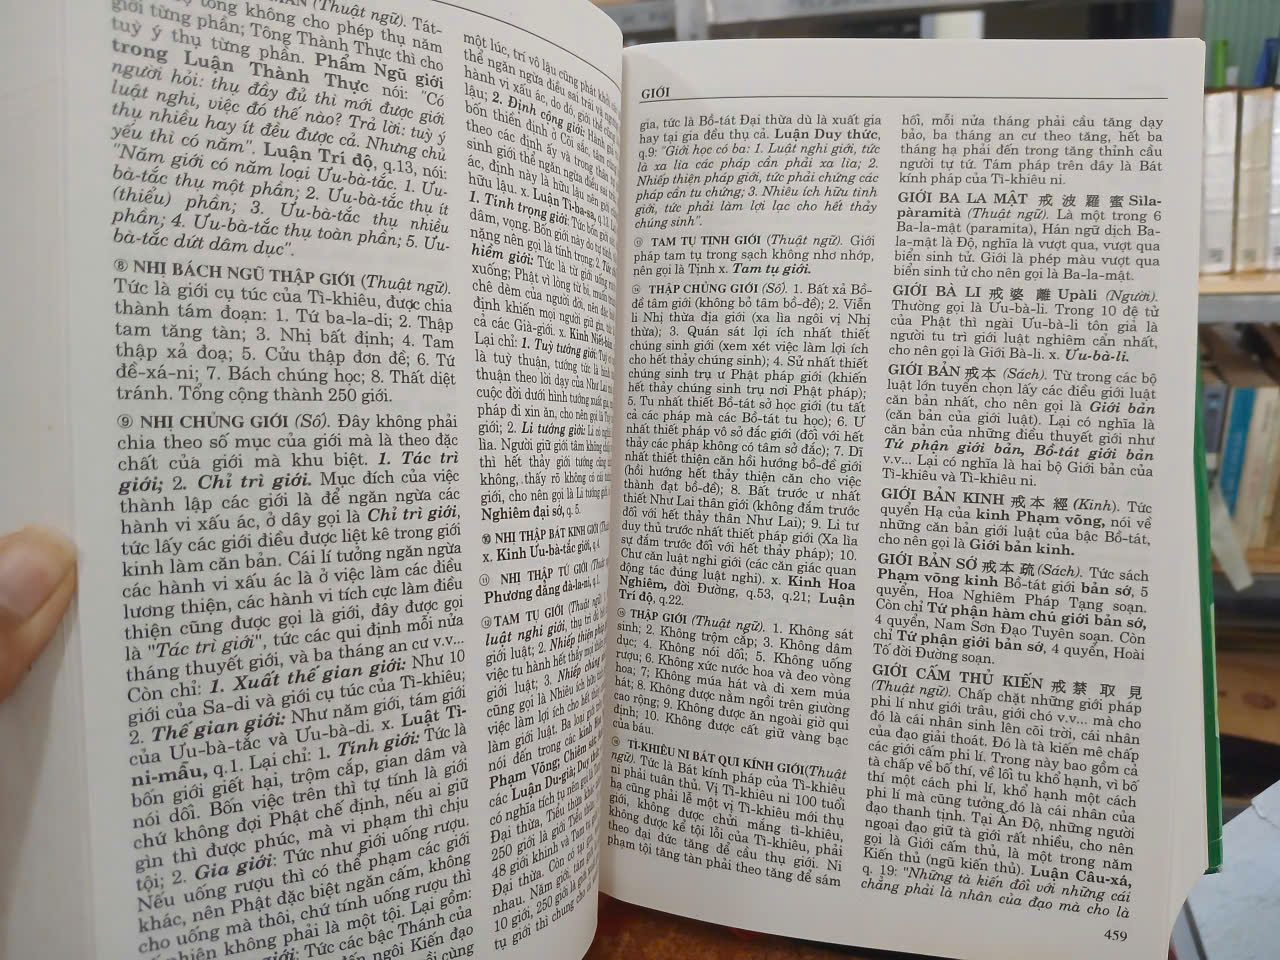 MÂN (Thuật ngữ). Tát-
tông không cho phép thụ năm
giới từng phần; Tông Thành Thực thì cho
tuỳ ý thụ từng phần. Phẩm Ngũ giới
trong Luận Thành Thực nói: "Có
người hỏi: thụ đầy đủ thì mới được giới
luật nghi, việc đó thế nào? Trả lời: tuỳ ý
thụ nhiều hay ít đều được cả. Nhưng chủ
yếu thì có năm". Luận Trí độ, q.13, nói:
"Năm giới có năm loại Ưu-bà-tắc. 1. Ưu-
bà-tắc thụ một phần; 2. Ưu-bà-tắc thụ ít
(thiểu) phần; 3. Ưu-bà-tắc thụ nhiều
phần; 4. Ưu-bà-tắc thụ toàn phần; 5. Ưu-
bà-tắc dứt dâm dục".
⑧ NHỊ BÁCH NGŨ THẬP GIỚI (Thuật ngữ).
Tức là giới cụ túc của Tì-khiêu, được chia
thành tám đoạn: 1. Tứ ba-la-di; 2. Thập
tam tăng tàn; 3. Nhị bất định; 4. Tam
thập xả đoạ; 5. Cửu thập đơn đề; 6. Tứ
đề-xá-ni; 7. Bách chúng học; 8. Thất diệt
tránh. Tổng cộng thành 250 giới.
⑨ NHỊ CHỦNG GIỚI (Số). Đây không phải
chia theo số mục của giới mà là theo đặc
chất của giới mà khu biệt. 1. Tác trì
giới; 2. Chỉ trì giới. Mục đích của việc
thành lập các giới là để ngăn ngừa các
hành vi xấu ác, ở dây gọi là Chỉ trì giới,
tức lấy các giới điều được liệt kê trong giới
kinh làm căn bản. Cái lí tưởng ngăn ngừa
các hành vi xấu ác là ở việc làm các điều
lương thiện, các hành vi tích cực làm điều
thiện cũng được gọi là giới, đây được gọi
là "Tác trì giới", tức các qui định mỗi nửa
tháng thuyết giới, và ba tháng an cư v.v...
Còn chỉ: 1. Xuất thế gian giới: Như 10
giới của Sa-di và giới cụ túc của Tì-khiêu;
2. Thế gian giới: Như năm giới, tám giới
của Ưu-bà-tắc và Ưu-bà-di. x. Luật Tì-
ni-mẫu, q.1. Lại chỉ: 1. Tính giới: Tức là
bốn giới giết hại, trộm cắp, gian dâm và
nói dối. Bốn việc trên thì tự tính là giới
chứ không đợi Phật chế định, nếu ai giữ
gìn thì được phúc, mà vi phạm thì chịu
tội; 2. Gia giới: Tức như giới uống rượu.
Nếu uống rượu thì có thể phạm các giới
khác, nên Phật đặc biệt ngăn cấm, không
cho uống mà thôi, chứ tính uống rượu thì
nhiên không phải là một tội. Lại gồm:
giới: Tức các bậc Thánh của
đến ngôi Kiến đạo
một lúc, trí vô lậu cũng phát khởi
thể ngăn ngừa điều sai trái và
hành vi xấu ác, do đó, giới thể
lậu; 2. Định cộng giới: Hành giả
bốn thiền định ở Cõi sắc, tâm
theo các định ấy và trong thân
sinh giới thể ngăn ngừa điều sai
ác, định này là hữu lậu nên giới
hữu lậu. x. Luận Tì-ba-sa, q.
1. Tính trọng giới: Tức bốn giới
dâm, vọng. Bốn giới này do tự tính
nặng nên gọi là tính trọng; 2. Tức
hiềm giới: Tức là từ giới uống
xuống; Phật vì lòng từ bi, muốn
chê dèm của người đời, nên đặc
định khiến mọi người giữ gìn,
cả các Già-giới. x. Kinh Niết-bàn
Lại chỉ: 1. Tuỳ tướng giới: Tuỳ
là tuỳ thuận, tướng tức là hình
thuận theo lời dạy của Như Lai
cuộc đời dưới hình tướng xuất gia,
pháp đi xin ăn, cho nên gọi là Tuỳ
giới; 2. Li tướng giới: Li có nghĩa
lìa. Người giữ giới tâm không
thì hết thảy giới tướng cũng
không, thấy rõ không có cái
giới, cho nên gọi là Li tướng giới.
Nghiêm đại sớ, q. 5.
⑩ NHỊ THẬP BÁT KINH GIỚI (Thuật
x. Kinh Ưu-bà-tắc giới, q.4
⑪ NHỊ THẬP TỨ GIỚI (Thuật
Phương đẳng đà-la-ni, q.1.
⑫ TAM TỤ GIỚI (Thuật ngữ).
luật nghi giới, thụ trì đủ
giới luật; 2. Nhiếp thiện pháp
việc tu hành hết thảy mọi thiện
giới luật; 3. Nhiếp chúng
cũng gọi là Nhiêu ích hữu tình
việc làm lợi ích cho hết thảy
làm giới luật. Ba loại giới
nói đến trong các kinh Hoa
Phạm Võng, Chiêm sát,
các Luận Du-già, Duy thức
có nghĩa tích tụ nên gọi là
Đại thừa, Tiểu thừa khác
250 giới là giới Tiểu thừa,
48 giới khinh và Tam tụ
Đại thừa. Còn có tại
nhau. Năm giới, tám giới
10 giới, 250 giới là giới
tụ giới thì chung cho
GIỚI
gia, tức là Bồ-tát Đại thừa dù là xuất gia
hay tại gia đều thụ cả. Luận Duy thức,
q.9: "Giới học có ba: 1. Luật nghi giới, tức
là xa lìa các pháp cần phải xa lìa; 2.
Nhiếp thiện pháp giới, tức phải chứng các
pháp cần tu chứng; 3. Nhiêu ích hữu tình
giới, tức phải làm lợi lạc cho hết thảy
chúng sinh".
⑬ TAM TỤ TỊNH GIỚI (Thuật ngữ). Giới
pháp tam tụ trong sạch không nhơ nhớp,
nên gọi là Tịnh x. Tam tụ giới.
⑭ THẬP CHỦNG GIỚI (Số). 1. Bất xả Bồ-
đề tâm giới (không bỏ tâm bồ-đề); 2. Viễn
li Nhị thừa địa giới (xa lìa ngôi vị Nhị
thừa); 3. Quán sát lợi ích nhất thiết
chúng sinh giới (xem xét việc làm lợi ích
cho hết thảy chúng sinh); 4. Sử nhất thiết
chúng sinh trụ ư Phật pháp giới (khiến
hết thảy chúng sinh trụ nơi Phật pháp);
5. Tu nhất thiết Bồ-tát sở học giới (tu tất
cả các pháp mà các Bồ-tát tu học); 6. Ư
nhất thiết pháp vô sở đắc giới (đối với hết
thảy các pháp không có tâm sở đắc); 7. Dĩ
nhất thiết thiện căn hồi hướng bồ-đề giới
(hồi hướng hết thảy thiện căn cho việc
thành đạt bồ-đề); 8. Bất trước ư nhất
thiết Như Lai thân giới (không đắm trước
đối với hết thảy thân Như Lai); 9. Li tư
duy thủ trước nhất thiết pháp giới (Xa lìa
sự đắm trước đối với hết thảy pháp); 10.
Chư căn luật nghi giới (các căn giác quan
động tác đúng luật nghi). x. Kinh Hoa
Nghiêm, đời Đường, q.53, q.21; Luận
Trí độ, q.22.
⑮ THẬP GIỚI (Thuật ngữ). 1. Không sát
sinh; 2. Không trộm cắp; 3. Không dâm
dục; 4. Không nói dối; 5. Không uống
rượu; 6. Không xức nước hoa và đeo vòng
hoa; 7; Không múa hát và đi xem múa
hát; 8. Không được nằm ngồi trên giường
cao rộng; 9. Không được ăn ngoài giờ qui
định; 10. Không được cất giữ vàng bạc
của báu.
⑯ TÌ-KHIÊU NI BÁT QUI KÍNH GIỚI(Thuật
ngữ). Tức là Bát kính pháp của Tì-khiêu
ni phải tuân thủ. Vị Tì-khiêu ni 100 tuổi
hạ cũng phải lễ một vị Tì-khiêu mới thụ
giới, không được chửi mắng tì-khiêu,
không được kể tội lỗi của Tì-khiêu, phải
theo đại đức tăng để cầu thụ giới. Ni
phạm tội tăng tàn phải theo tăng để sám
hối, mỗi nửa tháng phải cầu tăng dạy
bảo, ba tháng an cư theo tăng, hết ba
tháng hạ phải đến trong tăng thỉnh cầu
người tự tứ. Tám pháp trên đây là Bát
kính pháp của Tì-khiêu ni.
GIỚI BA LA MẬT 戒 波 羅 蜜 Sila-
pàramità (Thuật ngữ). Là một trong 6
Ba-la-mật (paramita), Hán ngữ dịch Ba-
la-mật là Độ, nghĩa là vượt qua, vượt qua
biển sinh tử. Giới là phép màu vượt qua
biển sinh tử cho nên gọi là Ba-la-mật.
GIỚI BÀ LI 戒 婆 離 Upàli (Người).
Thường gọi là Ưu-bà-li. Trong 10 đệ tử
của Phật thì ngài Ưu-bà-li tôn giả là
người tu trì giới luật nghiêm cẩn nhất,
cho nên gọi là Giới Bà-li. x. Ưu-bà-li.
GIỚI BẢN 戒本 (Sách). Từ trong các bộ
luật lớn tuyển chọn lấy các điều giới luật
căn bản nhất, cho nên gọi là Giới bản
(căn bản của giới luật). Lại có nghĩa là
căn bản của những điều thuyết giới như
Tứ phận giới bản, Bồ-tát giới bản
v.v... Lại có nghĩa là hai bộ Giới bản của
Tì-khiêu và Tì-khiêu ni.
GIỚI BẢN KINH 戒 本 經 (Kinh). Tức
quyển Hạ của kinh Phạm võng, nói về
những căn bản giới luật của bậc Bồ-tát,
cho nên gọi là Giới bản kinh.
GIỚI BẢN SỚ 戒 本 疏 (Sách). Tức sách
Phạm võng kinh Bồ-tát giới bản sớ, 5
quyển, Hoa Nghiêm Pháp Tạng soạn.
Còn chỉ Tứ phận hàm chú giới bản sớ,
4 quyển, Nam Sơn Đạo Tuyên soạn. Còn
chỉ Tứ phận giới bản sớ, 4 quyển, Hoài
Tố đời Đường soạn.
GIỚI CẤM THỦ KIẾN 戒 禁 取 見
(Thuật ngữ). Chấp chặt những giới pháp
phi lí như giới trâu, giới chó v.v... mà cho
đó là cái nhân sinh lên cõi trời, cái nhân
của đạo giải thoát. Đó là tà kiến mê chấp
các giới cấm phi lí. Trong này bao gồm cả
tà chấp về bố thí, về lối tu khổ hạnh, vì bố
thí một cách phi lí, khổ hạnh một cách
phi lí mà cũng tưởng đó là cái nhân của
đạo thanh tịnh. Tại Ấn Độ, những người
ngoại đạo giữ tà giới rất nhiều, cho nên
gọi là Giới cấm thủ, là một trong năm
Kiến thủ (ngũ kiến thủ). Luận Câu-xá,
q. 19: "Những tà kiến đối với những cái
chẳng phải là nhân của đạo mà cho là
459